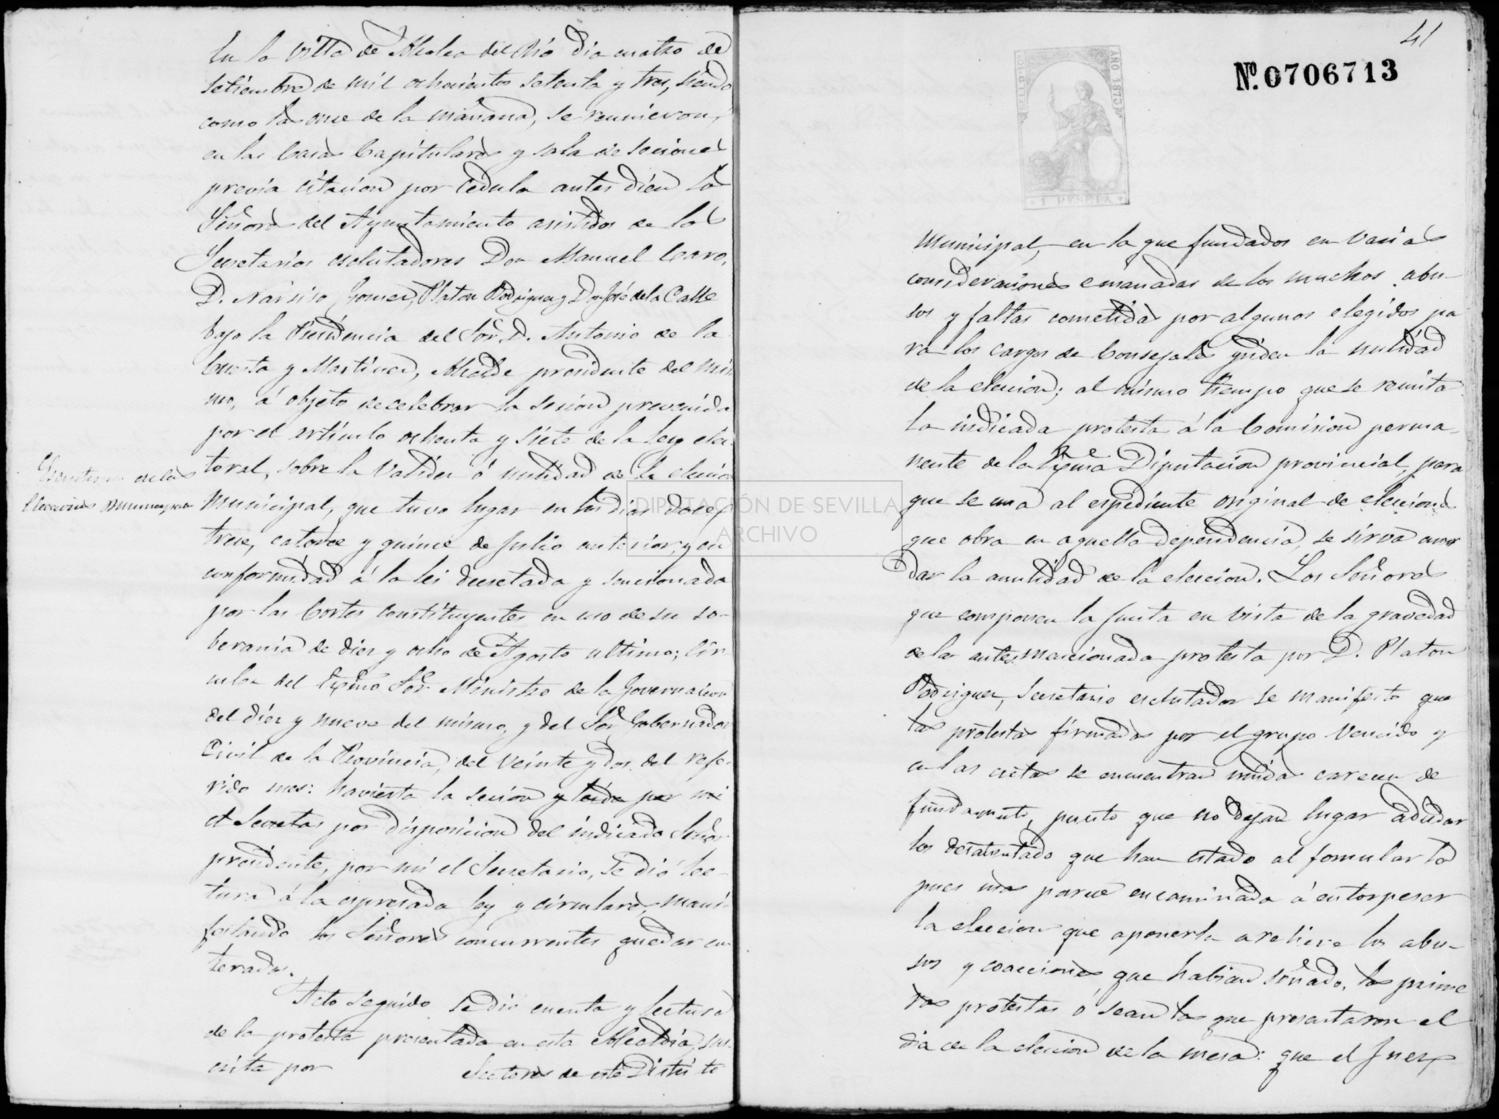 En la villa de Alcala del Rio dia cuatro de
Setiembre de mil ochocientos setenta y tres, siendo
como las once de la mañana, se reunieron,
en las Casas Capitulares y sala de seciones
previa citacion por cedula antes diem los
Señores del Ayuntamiento asistidos de los
Secretarios escrutadores Don Manuel Caro,
D. Narsiso Gomez, Platon Rodriguez y Don José de la Calle
bajo la Presidencia del Sor. D. Antonio de la
Cuesta y Martinez, Alcalde presidente del mis
mo, á objeto de celebrar la sesion prevenida
por el artículo ochenta y siete de la ley elec
toral, sobre la validez ó nulidad de la eleccion
Escrutinio de las
Elecciones Municipales
Municipal, que tuvo lugar en los dias doce,
trece, catorce y quince de Julio anterior, y en
conformidad á la lei decretada y sancionada
por las Cortes constituyentes en uso de su so-
berania de diez y ocho de Agosto ultimo; Cir
cular del Exmo Sor. Ministro de la Governacion
del diez y nueve del mismo, y del Sor Gobernador
Civil de la Provincia, del veinte y dos del refe-
rido mes: havierta la secion y leida por mi
el Secretas por disposicion del indicado Señor
presidente, por mi el Secretario, se dió lec-
tura á la espresada ley y circulares, mani
festando los Señores concurrentes quedar en
terados.
Acto seguido se dio cuenta y lectura
de la protesta presentada en esta Alcaldia, sus
crita por electores de este Distrito
41
Nº. 0706713
SELLO 11º
AÑO DE 1873
1 PESETA
Municipal, en la que fundados en varias
consideraciones emanadas de los muchos abu-
sos y faltas cometidas por algunos elegidos pa
ra los cargos de Consejales piden la nulidad
de la eleccion; al mismo tiempo que se remita
la indicada protesta á la Comision perma-
nente de la Exma Diputacion provincial, para
que se una al espediente original de eleccion
que obra en aquella Dependencia, se sirva acor
dar la anulidad de la eleccion. Los Señores
que componen la Junta en vista de la gravedad
de la antes mencionada protesta por D. Platon
Rodriguez, Secretario escrutador se manifesto que
las protestas firmadas por el grupo vencido y
en las actas se encuentran unidas carecen de
fundamento, puesto que no dejan lugar a dudar
los desatentado que han estado al formular la
pues mas parece encaminada á entorpeser
la eleccion que aponerla a relieve los abu-
sos y coacciones que habian soñado, las prime
ras protestas ó sean las que presentaron el
dia de la eleccion de la mesa: que el Juez
DIPUTACIÓN DE SEVILLA
ARCHIVO